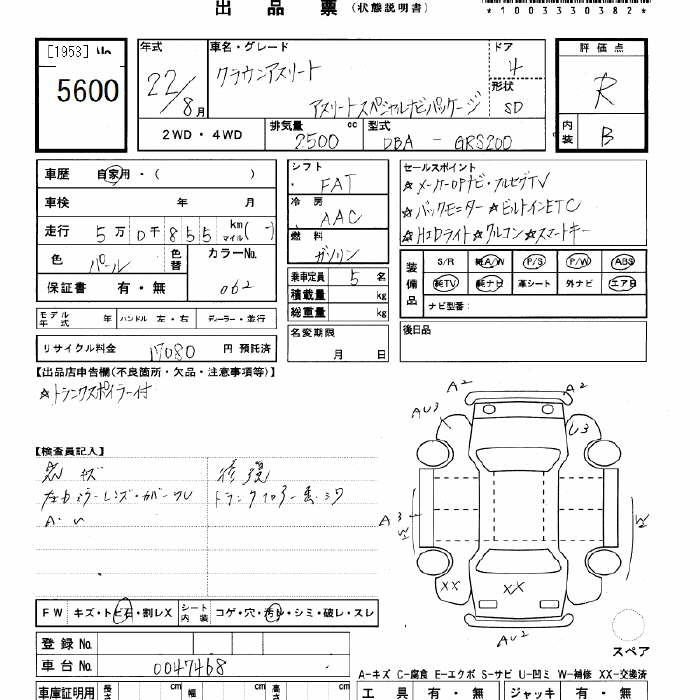 出品票(状態説明書)
*1003330382*
[1953] No
5600
年式
22/8月
車名・グレード
クラウンアスリート
アスリートスペシャルナビパッケージ
ドア
4
形状
SD
評価点
R
内装
B
2WD・4WD
排気量
2500 cc
型式
DBA - GRS200
車歴 自家用・( )
車検 年 月
走行 5万0千855 km マイル(-)
色 パール 色替 カラーNo. 062
保証書 有・無
シフト
FAT
冷房
AAC
燃料
ガソリン
乗車定員 5名
積載量 kg
総重量 kg
名変期限
月 日
セールスポイント
☆メーカーOPナビ・フルセグTV
☆バックモニター☆ビルトインETC
☆HIDライト☆クルコン☆スマートキー
装備品
S/R 純A/W P/S P/W ABS
純TV 純ナビ 革シート 外ナビ エアB
ナビ型番:
後日品
モデル年式 年 ハンドル 左・右 ディーラー・並行
リサイクル料金 17080 円 預託済
【出品店申告欄(不良箇所・欠品・注意事項等)】
☆トランクスポイラー付
【検査員記入】
窓 キズ
修復
A2
A2
AU3
U3
A3
W
W
XX
XX
AU2
スペア
FW キズ・トビ石・割レX シート内装 コゲ・穴・汚レ・シミ・破レ・スレ
登録No.
車台No. 0047468
A-キズ C-腐食 E-エクボ S-サビ U-凹ミ W-補修 XX-交換済
車庫証明用 長さ cm 幅 cm 高さ cm
工具 有・無 ジャッキ 有・無